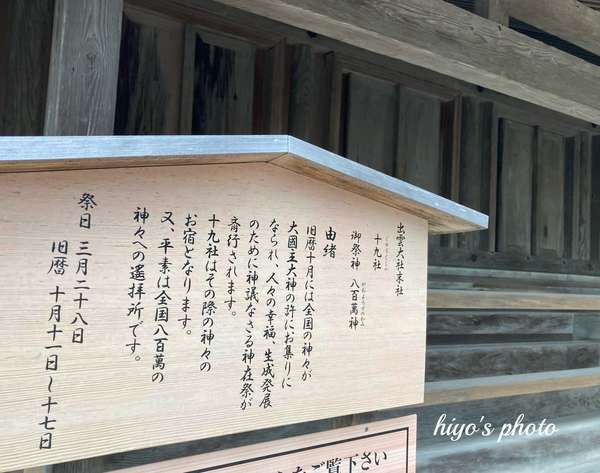 出雲大社末社
十九社
御祭神 八百萬神
由緒
旧暦十月には全国の神々が
大國主大神の許にお集りに
なられ、人々の幸福、生成発展
のために神議なさる神在祭が
斎行されます。
十九社はその際の神々の
お宿となります。
又、平素は全国八百萬の
神々への遥拝所です。
祭日 三月二十八日
旧暦 十月十一日〜十七日
ご覧下さい
hiyo's photo